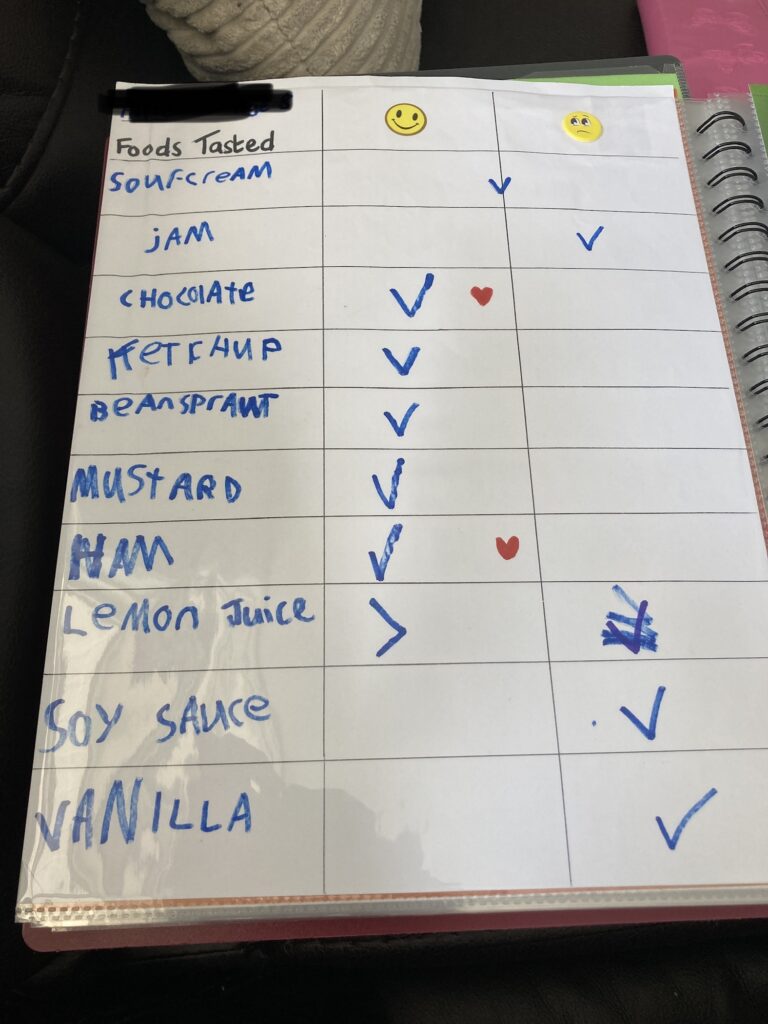 Foods Tasted
SOUrcreAM
jAM
CHOCOlAte
KeTCHUP
BeAnsprAWT
MUStARD
HAM
Lemon Juice
SOY SAUce
VANILLA